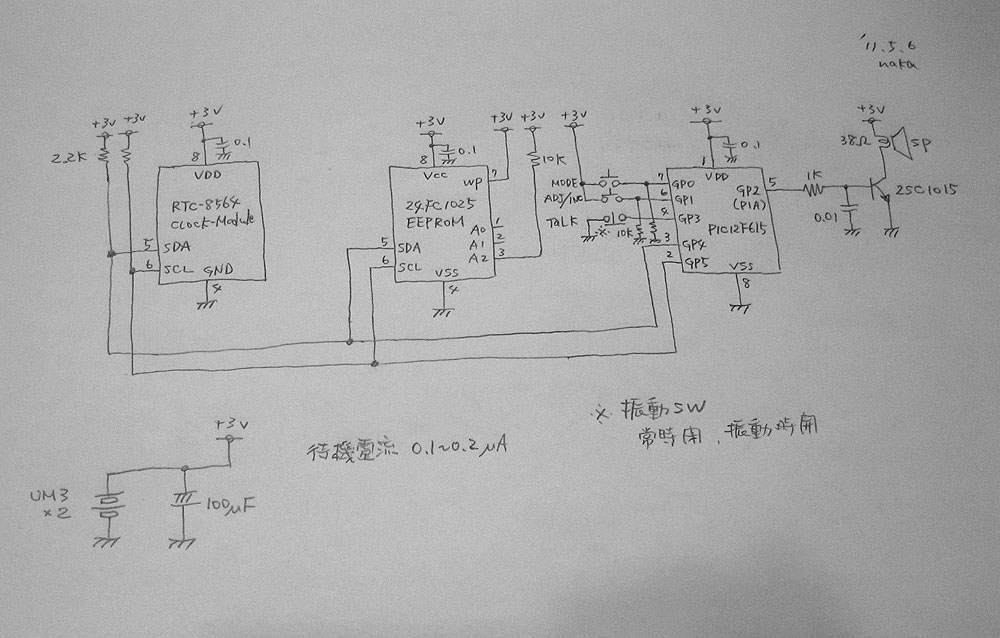 '11.5.6
naka
+3V
+3V
2.2K
+3V
0.1
8
VDD
RTC-8564
CLOCK-Module
5
SDA
6
SCL
GND
4
+3V
0.1
8
Vcc
WP
7
24FC1025
EEPROM
A0
1
A1
2
A2
3
5
SDA
6
SCL
VSS
4
+3V
+3V
10K
+3V
MODE
ADJ/INC
TALK
※
10K
+3V
0.1
1
VDD
7
GP0
6
GP1
4
GP3
3
GP4
2
GP5
GP2
(P1A)
5
PIC12F615
VSS
8
1K
0.01
+3V
38Ω
SP
2SC1015
※ 振動SW
常時閉、振動時開
待機電流 0.1~0.2μA
+3V
UM3
×2
100μF